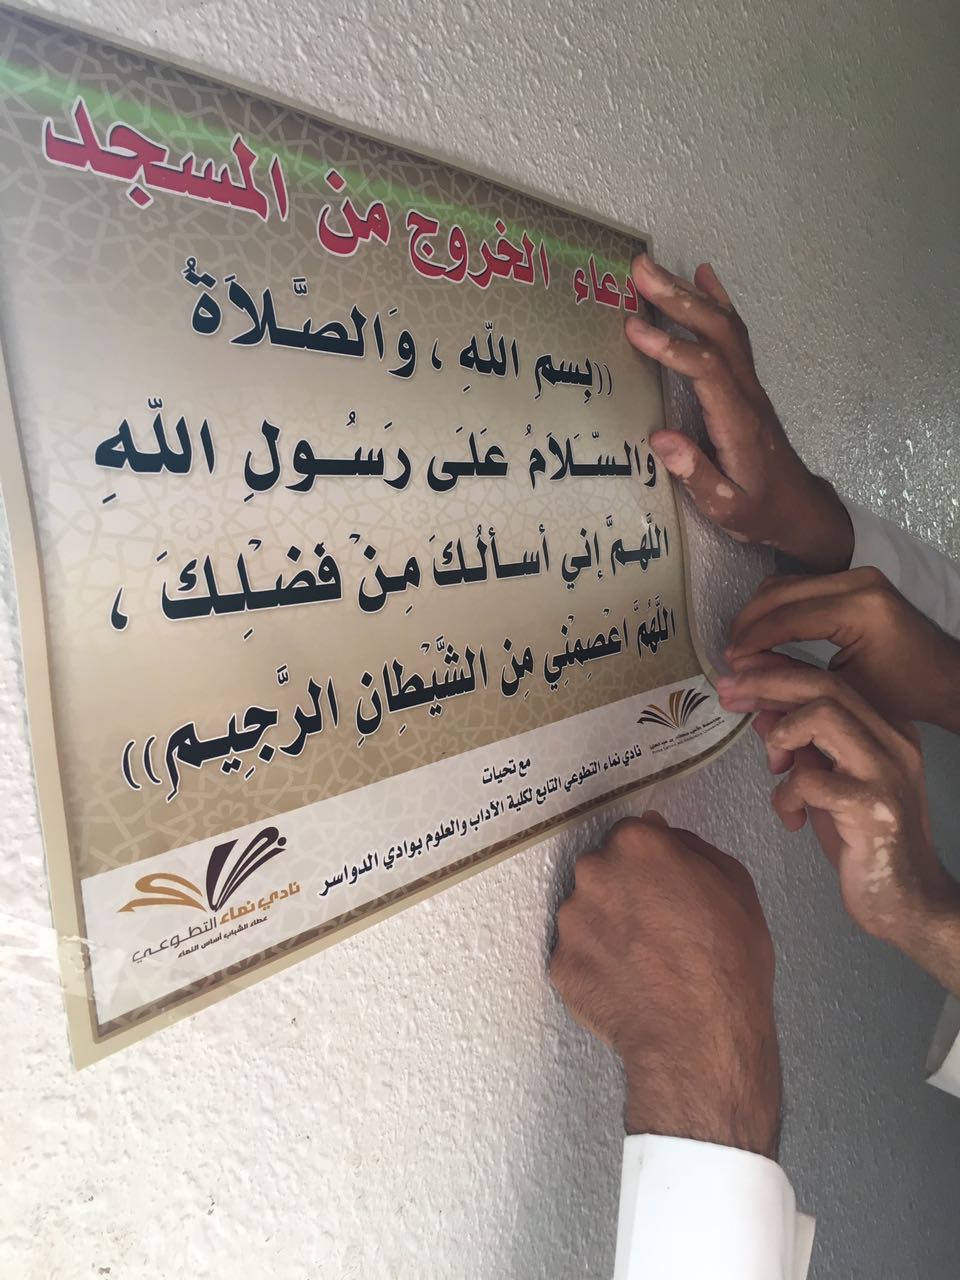 دعاء الخروج من المسجد
((بِسمِ اللّهِ ، وَالصَّلاَةُ
وَالسّلَامُ عَلَى رَسُولِ اللّهِ
اللَّهمَّ إني أسألُكَ مِنْ فَضْلِكَ ،
اللَّهُمَّ اعْصِمْنِي مِنَ الشَّيْطانِ الرَّجِيمِ))
مع تحيات
نادي نماء التطوعي التابع لكلية الآداب والعلوم بوادي الدواسر
نادي نماء التطوعي
عطاء الشباب أساس النماء